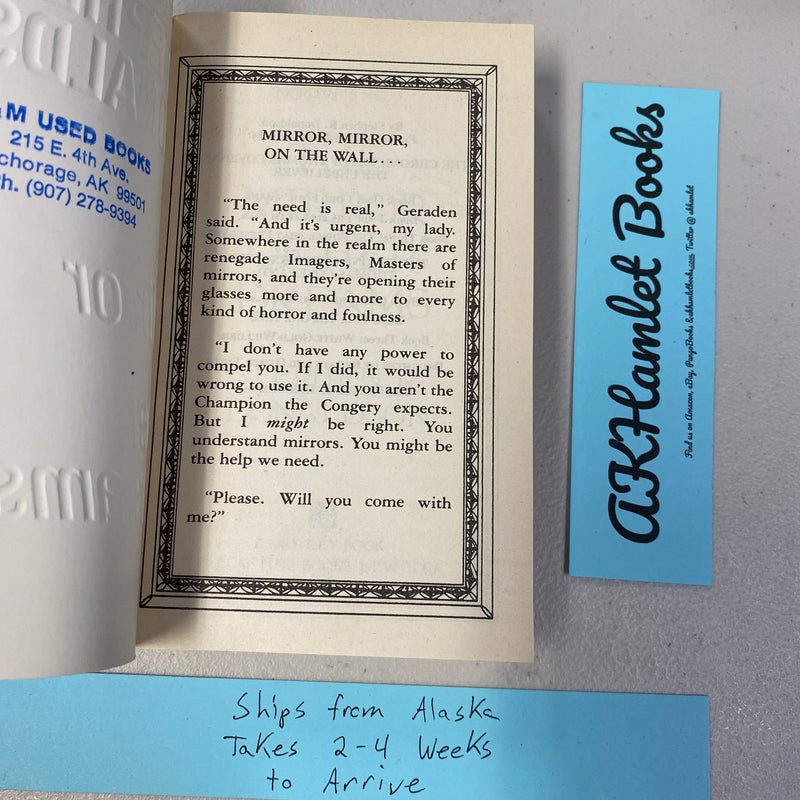 M USED BOOKS
215 E. 4th Ave.
chorage, AK 99501
h. (907) 278-9394
MIRROR, MIRROR,
ON THE WALL . . .
“The need is real,” Geraden
said. “And it’s urgent, my lady.
Somewhere in the realm there are
renegade Imagers, Masters of
mirrors, and they’re opening their
glasses more and more to every
kind of horror and foulness.
“I don’t have any power to
compel you. If I did, it would be
wrong to use it. And you aren’t the
Champion the Congery expects.
But I might be right. You
understand mirrors. You might be
the help we need.
“Please. Will you come with
me?”
AKHamlet Books
Find us on Amazon, eBay, PangoBooks & akhamletbooks.com Twitter @ akhamlet
Ships from Alaska
Takes 2-4 Weeks
to Arrive